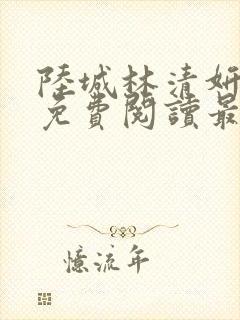 陸城林清妍
免費閱讀最
憶流年